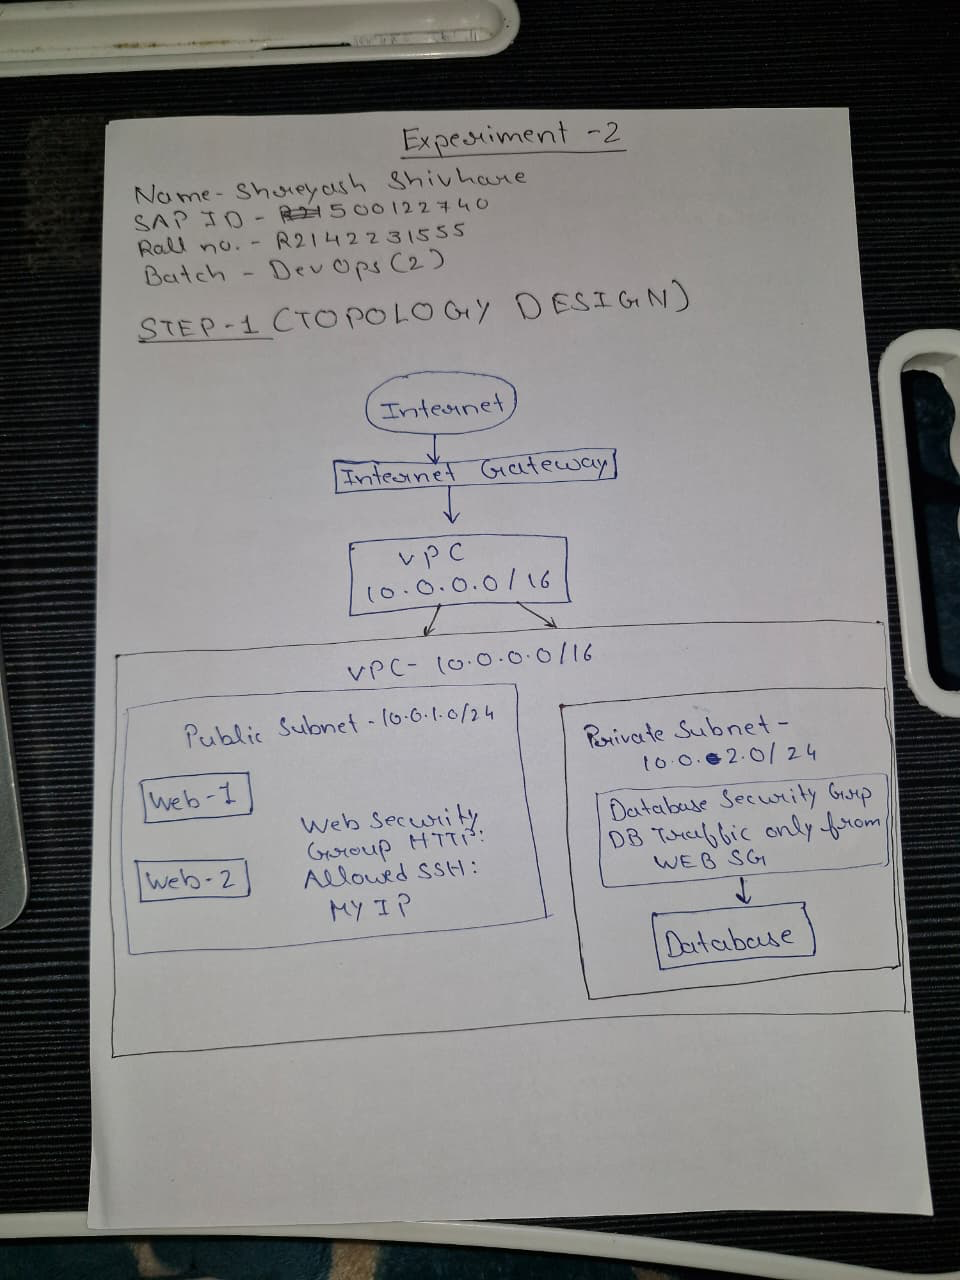 Experiment -2
Name- Shreyash Shivhare
SAP ID - 500122740
Roll no. - R2142231555
Batch - DevOps (2)
STEP-1 (TOPOLOGY DESIGN)
Internet
Internet Gateway
VPC
10.0.0.0/16
VPC- 10.0.0.0/16
Public Subnet - 10.0.1.0/24
Web-1
Web-2
Web Security
Group HTTP:
Allowed SSH:
MY IP
Private Subnet -
10.0.2.0/24
Database Security Grp
DB Traffic only from
WEB SG
Database